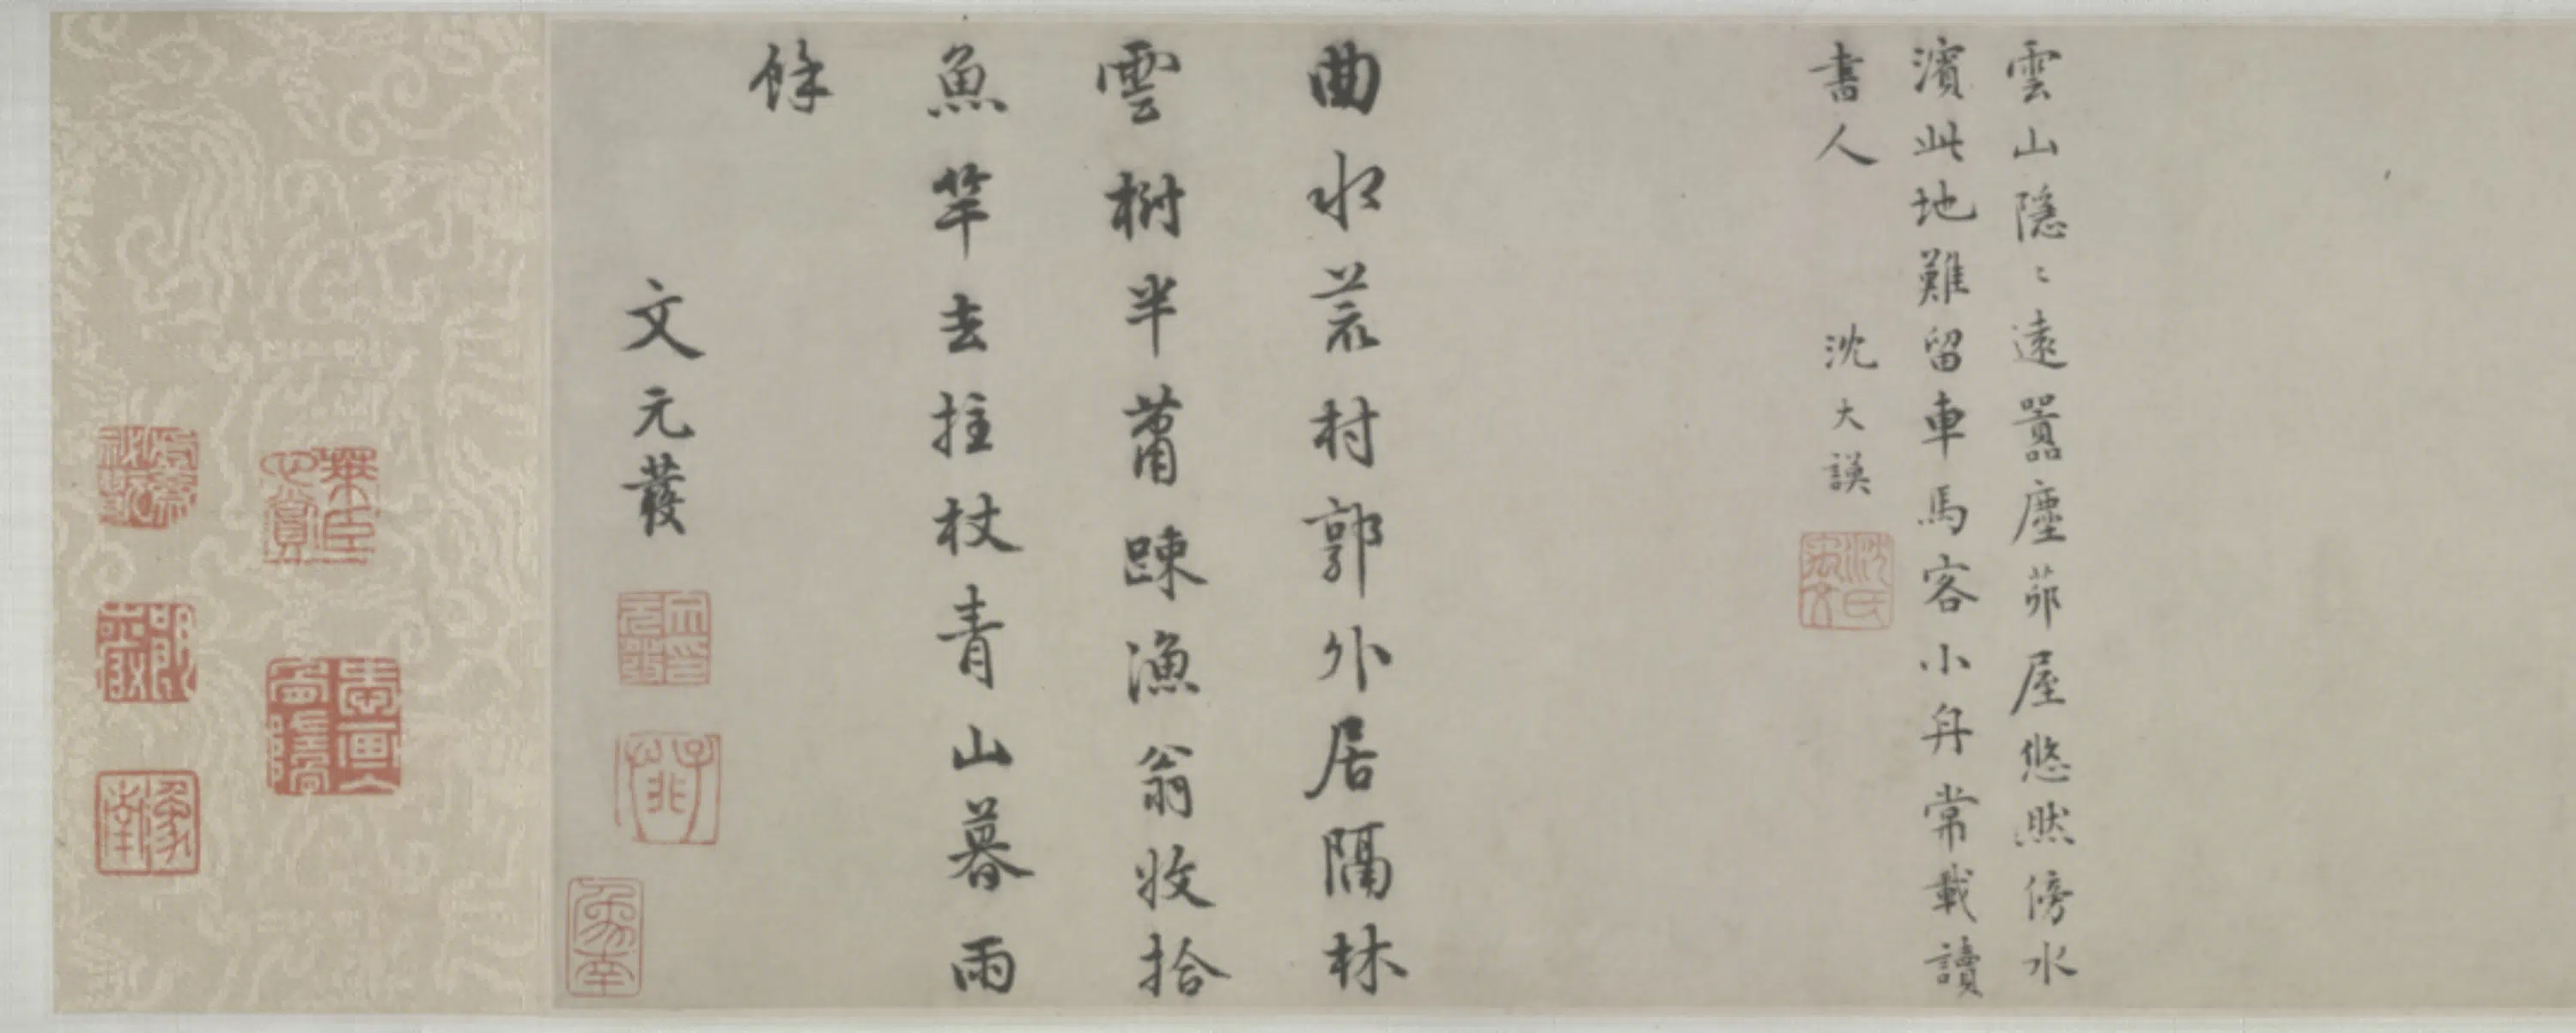 雲山隱〻遠囂塵茆屋悠然傍水
濱此地難留車馬客小舟常載讀
書人
沈大謨
沈氏
曲水荒村郭外居隔林
雲樹半蕭踈漁翁收拾
魚竿去拄杖青山暮雨
餘
文元發
象南
心賞